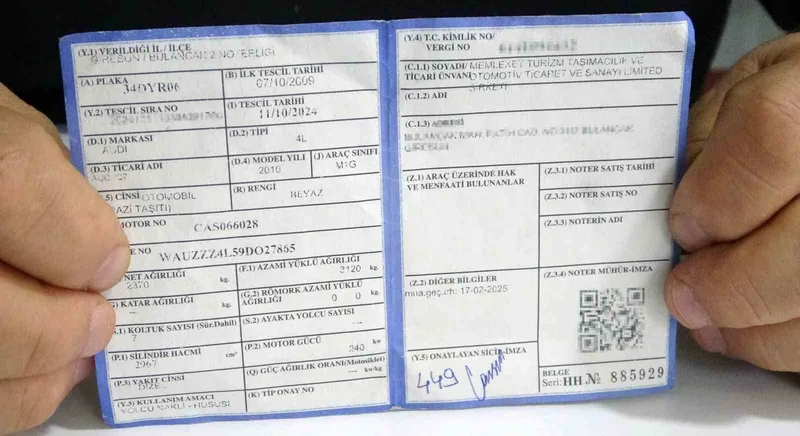 (Y.1) VERİLDİĞİ İL / İLÇE
GİRESUN / BULANCAK 2 NOTERLİĞİ
(A) PLAKA
34DYR06
(B) İLK TESCİL TARİHİ
07/10/2009
(Y.2) TESCİL SIRA NO
(I) TESCİL TARİHİ
11/10/2024
(D.1) MARKASI
AUDI
(D.2) TİPİ
4L
(D.3) TİCARİ ADI
(D.4) MODEL YILI
(J) ARAÇ SINIFI
M1G
5) CİNSİ OTOMOBİL
(ARAZİ TAŞITI)
(R) RENGİ
BEYAZ
MOTOR NO
CAS066028
E NO
WAUZZZ4L59DO27865
NET AĞIRLIĞI
2370 kg.
(F.1) AZAMİ YÜKLÜ AĞIRLIĞI
3120 kg.
KATAR AĞIRLIĞI
kg.
(G.2) RÖMORK AZAMİ YÜKLÜ
AĞIRLIĞI 0 0 kg.
.1) KOLTUK SAYISI (Sür.Dahil)
7
(S.2) AYAKTA YOLCU SAYISI
(P.1) SİLİNDİR HACMİ
2967 cm³
(P.2) MOTOR GÜCÜ
240 kw
(P.3) YAKIT CİNSİ
DİZEL
(Q) GÜÇ AĞIRLIK ORANI (Motosiklet)
kw/kg
(Y.3) KULLANIM AMACI
YOLCU NAKLİ - HUSUSİ
(K) TİP ONAY NO
(Y.4) T.C. KİMLİK NO/
VERGİ NO
(C.1.1) SOYADI/ MEMLEKET TURİZM TAŞIMACILIK VE
TİCARİ ÜNVANI OTOMOTİV TİCARET VE SANAYİ LİMİTED
ŞİRKETİ
(C.1.2) ADI
(C.1.3) ADRESİ
(Z.1) ARAÇ ÜZERİNDE HAK
VE MENFAATİ BULUNANLAR
(Z.3.1) NOTER SATIŞ TARİHİ
(Z.3.2) NOTER SATIŞ NO
(Z.3.3) NOTERİN ADI
(Z.2) DİĞER BİLGİLER
mua.geç.trh: 17-02-2025
(Z.3.4) NOTER MÜHÜR-İMZA
(Y.5) ONAYLAYAN SİCİL-İMZA
449
BELGE
Seri: HH № 885929